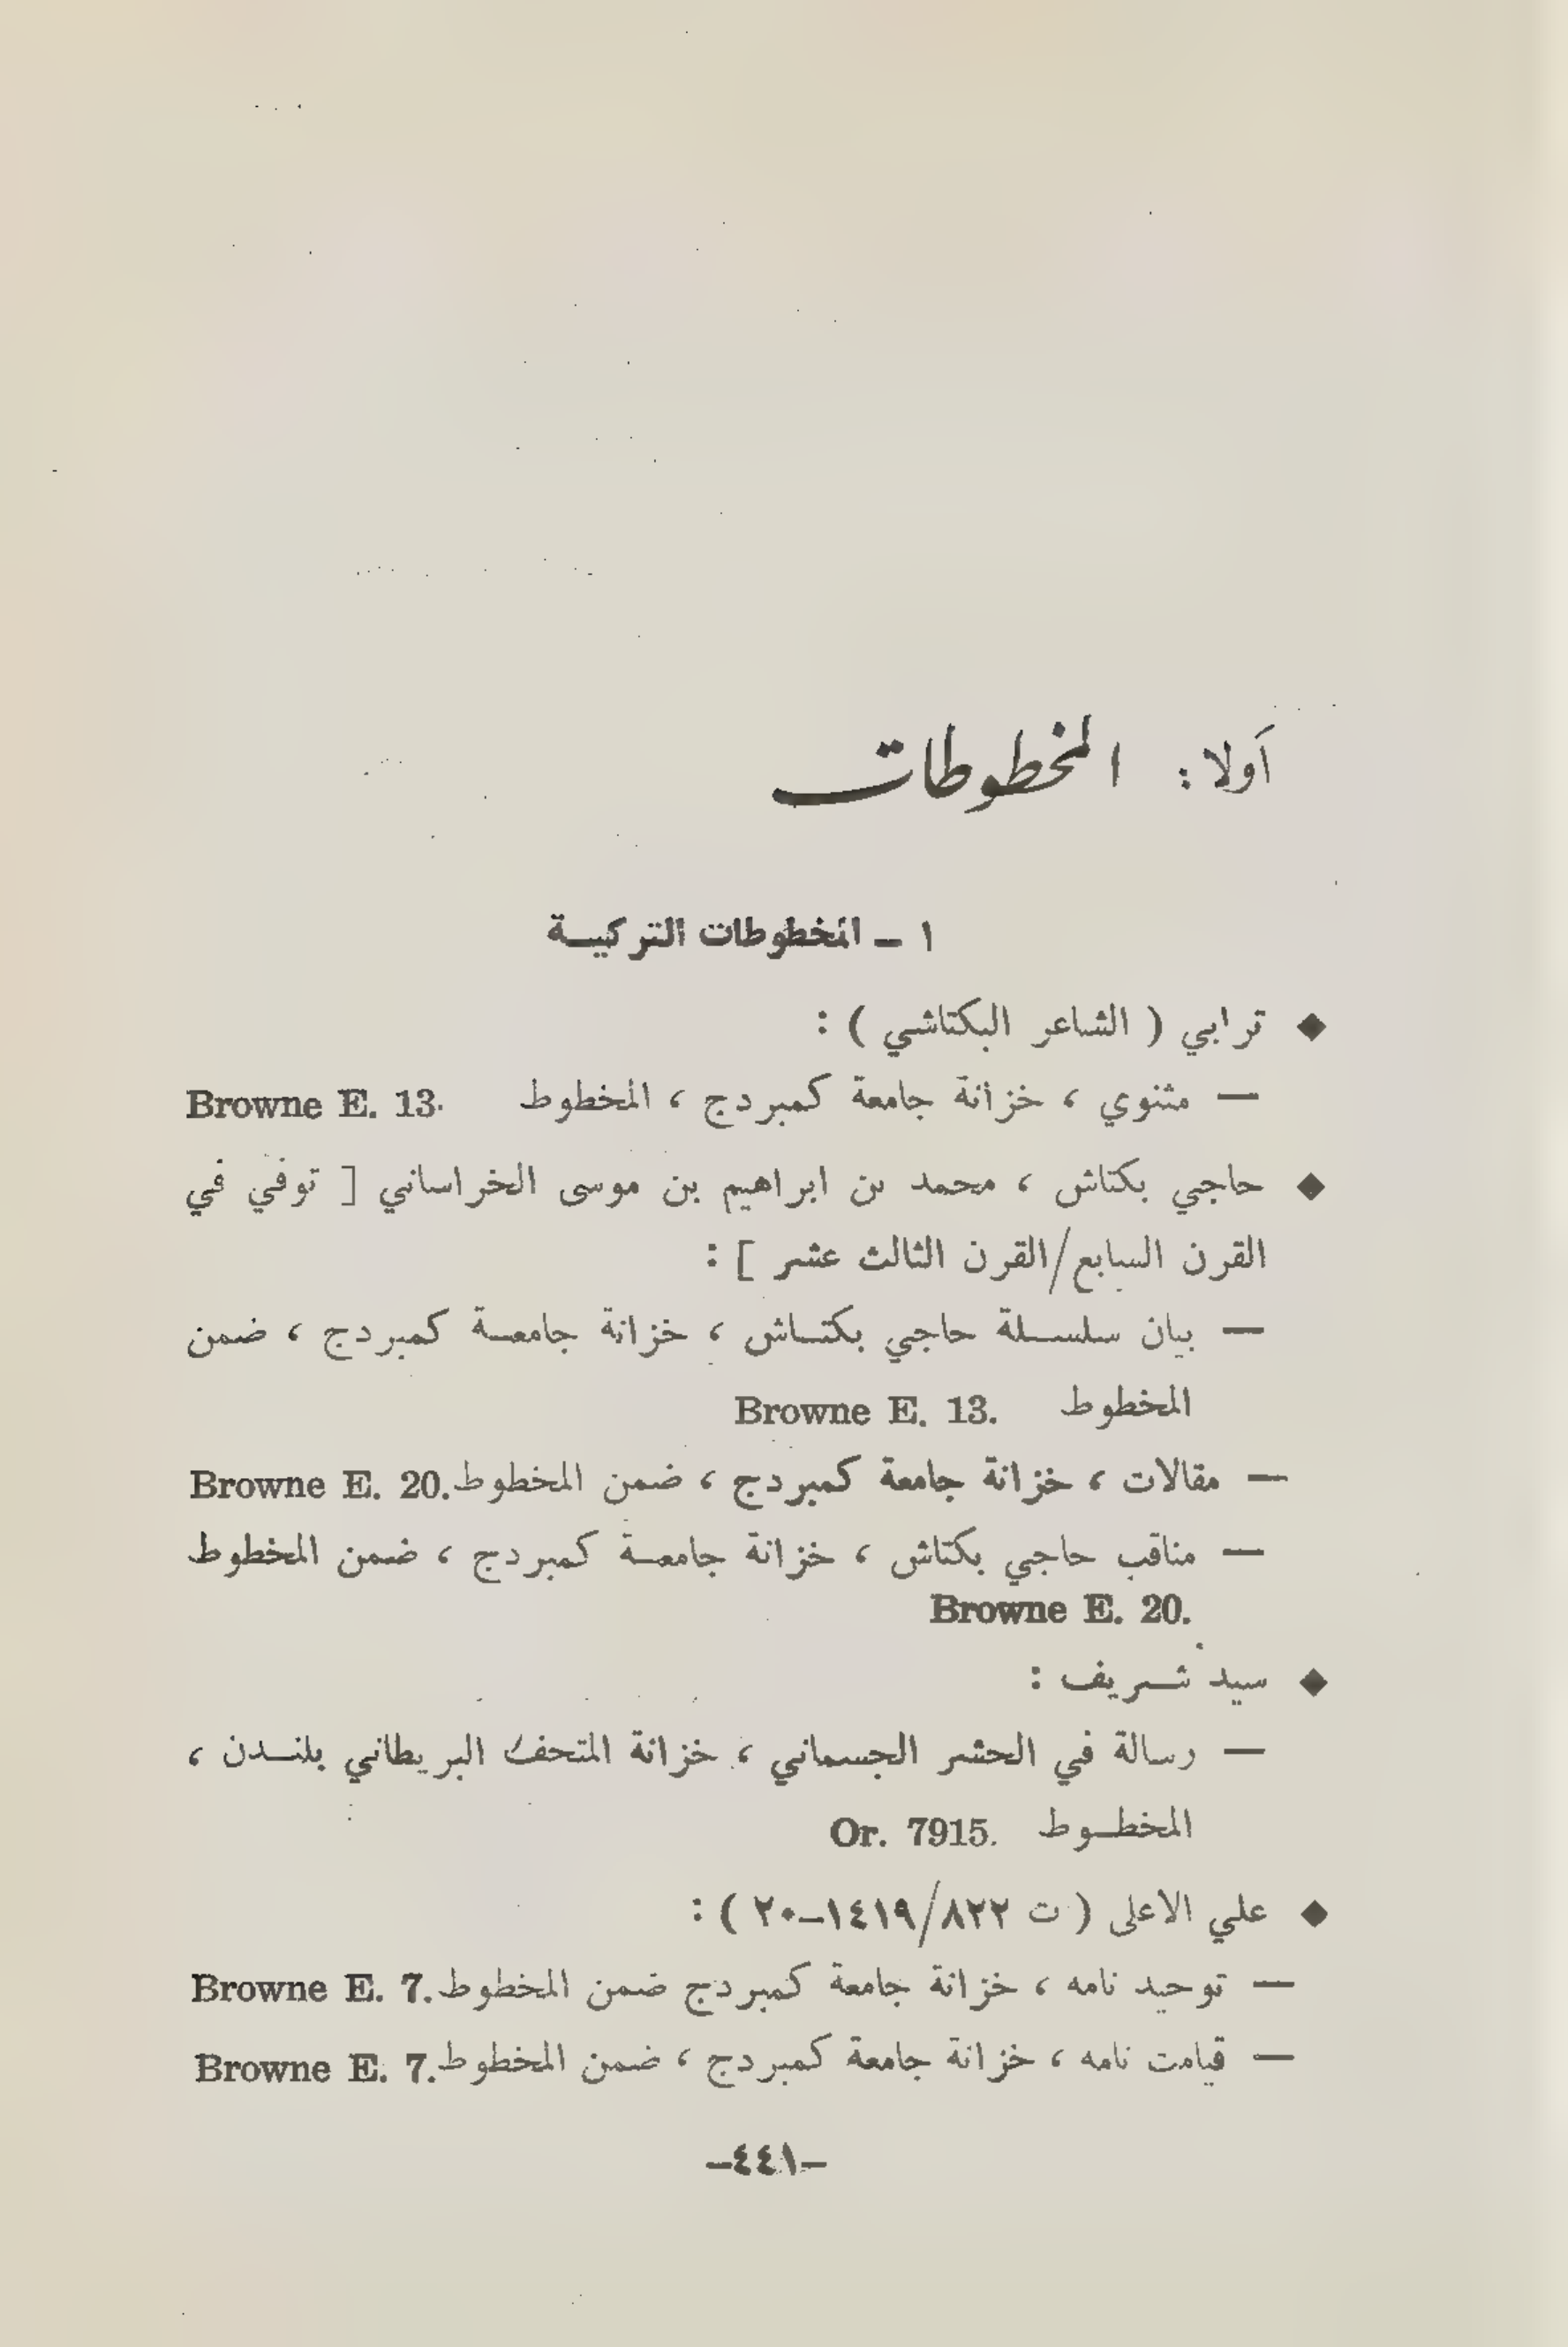 اولا : المخطوطات
١ ــ المخطوطات التركيــة
◆ ترابي ( الشاعر البكتاشي ) :
— مثنوي ، خزانة جامعة كمبردج ، المخطوط Browne E. 13.
◆ حاجي بكتاش ، محمد بن ابراهيم بن موسى الخراساني [ توفي في
القرن السابع/القرن الثالث عشر ] :
— بيان سلســلة حاجي بكتــاش ، خزانة جامعــة كمبردج ، ضمن
المخطوط Browne E. 13.
— مقالات ، خزانة جامعة كمبردج ، ضمن المخطوط Browne E. 20.
— مناقب حاجي بكتاش ، خزانة جامعــة كمبردج ، ضمن المخطوط
Browne E. 20.
◆ سيد شــريف :
— رسالة في الحشر الجسماني ، خزانة المتحف البريطاني بلنــدن ،
المخطــوط Or. 7915.
◆ علي الاعلى ( ت ٨٢٢/١٤١٩–٢٠ ) :
— توحيد نامه ، خزانة جامعة كمبردج ضمن المخطوط Browne E. 7.
— قيامت نامه ، خزانة جامعة كمبردج ، ضمن المخطوط Browne E. 7.
–٤٤١–